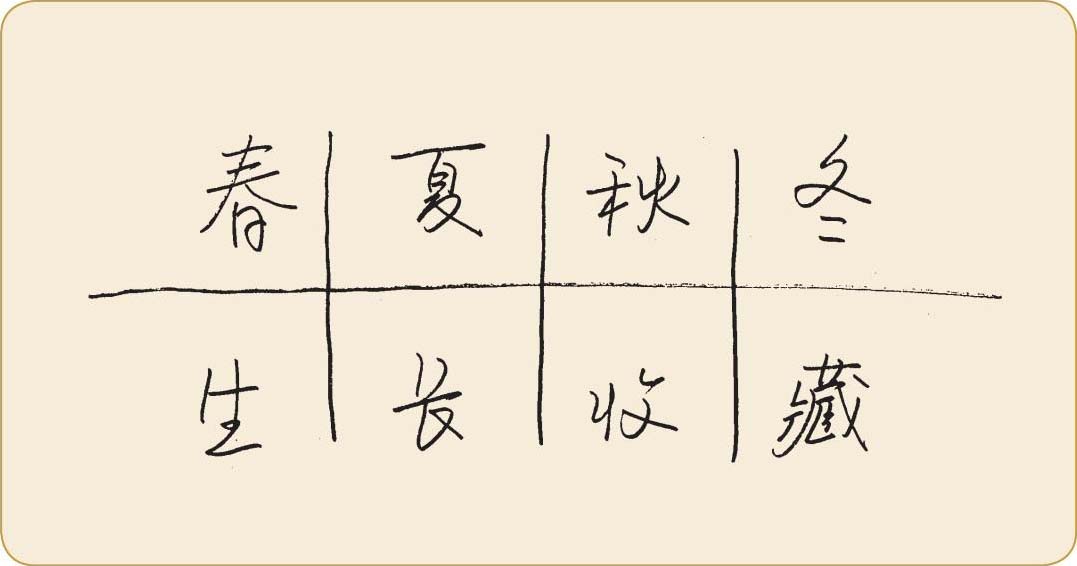 春 夏 秋 冬
生 长 收 藏